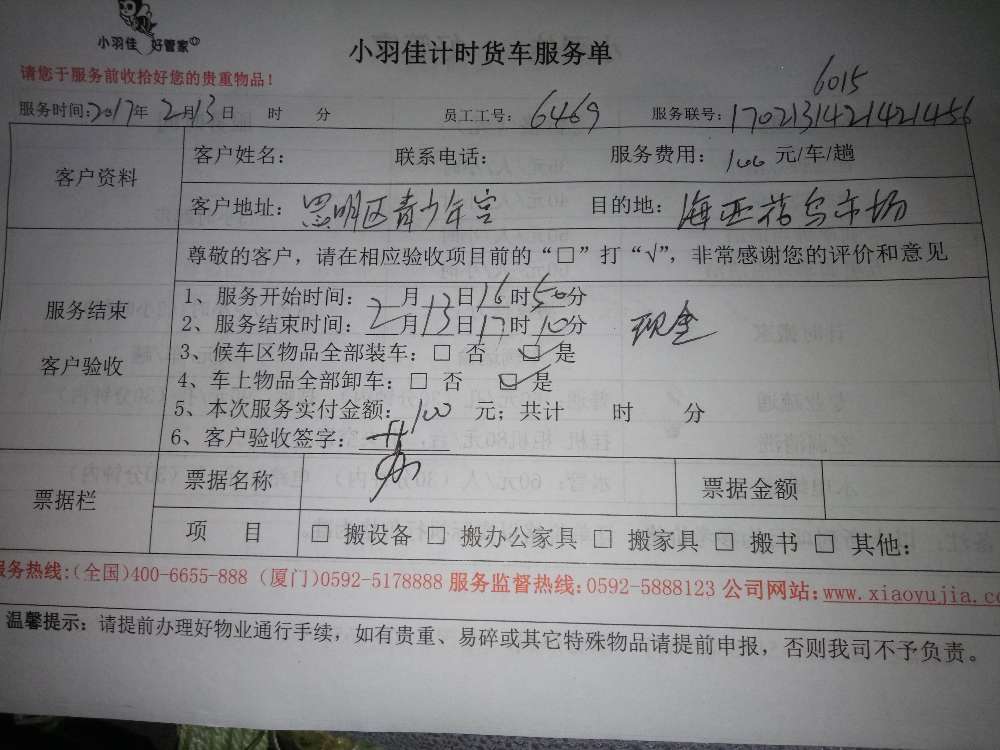 小羽佳 好管家
小羽佳计时货车服务单
请您于服务前收拾好您的贵重物品!
6015
服务时间:2017年 2月13日 时 分 员工工号: 6469 服务联号: 170213142142 1456
客户资料
客户姓名: 联系电话: 服务费用: 100 元/车/趟
客户地址: 思明区青少年宫 目的地: 海亚花鸟市场
服务结束
客户验收
尊敬的客户，请在相应验收项目前的“□”打“√”，非常感谢您的评价和意见
1、服务开始时间: 2月13日16时50分
2、服务结束时间: 2月13日17时10分 现金
3、候车区物品全部装车: □ 否 ☑ 是
4、车上物品全部卸车: □ 否 ☑ 是
5、本次服务实付金额: 100 元; 共计 时 分
6、客户验收签字:
票据栏
票据名称 票据金额
项 目 □ 搬设备 □ 搬办公家具 □ 搬家具 □ 搬书 □ 其他:
服务热线:(全国)400-6655-888 (厦门)0592-5178888 服务监督热线: 0592-5888123 公司网站: www.xiaoyujia.co
温馨提示: 请提前办理好物业通行手续，如有贵重、易碎或其它特殊物品请提前申报，否则我司不予负责。